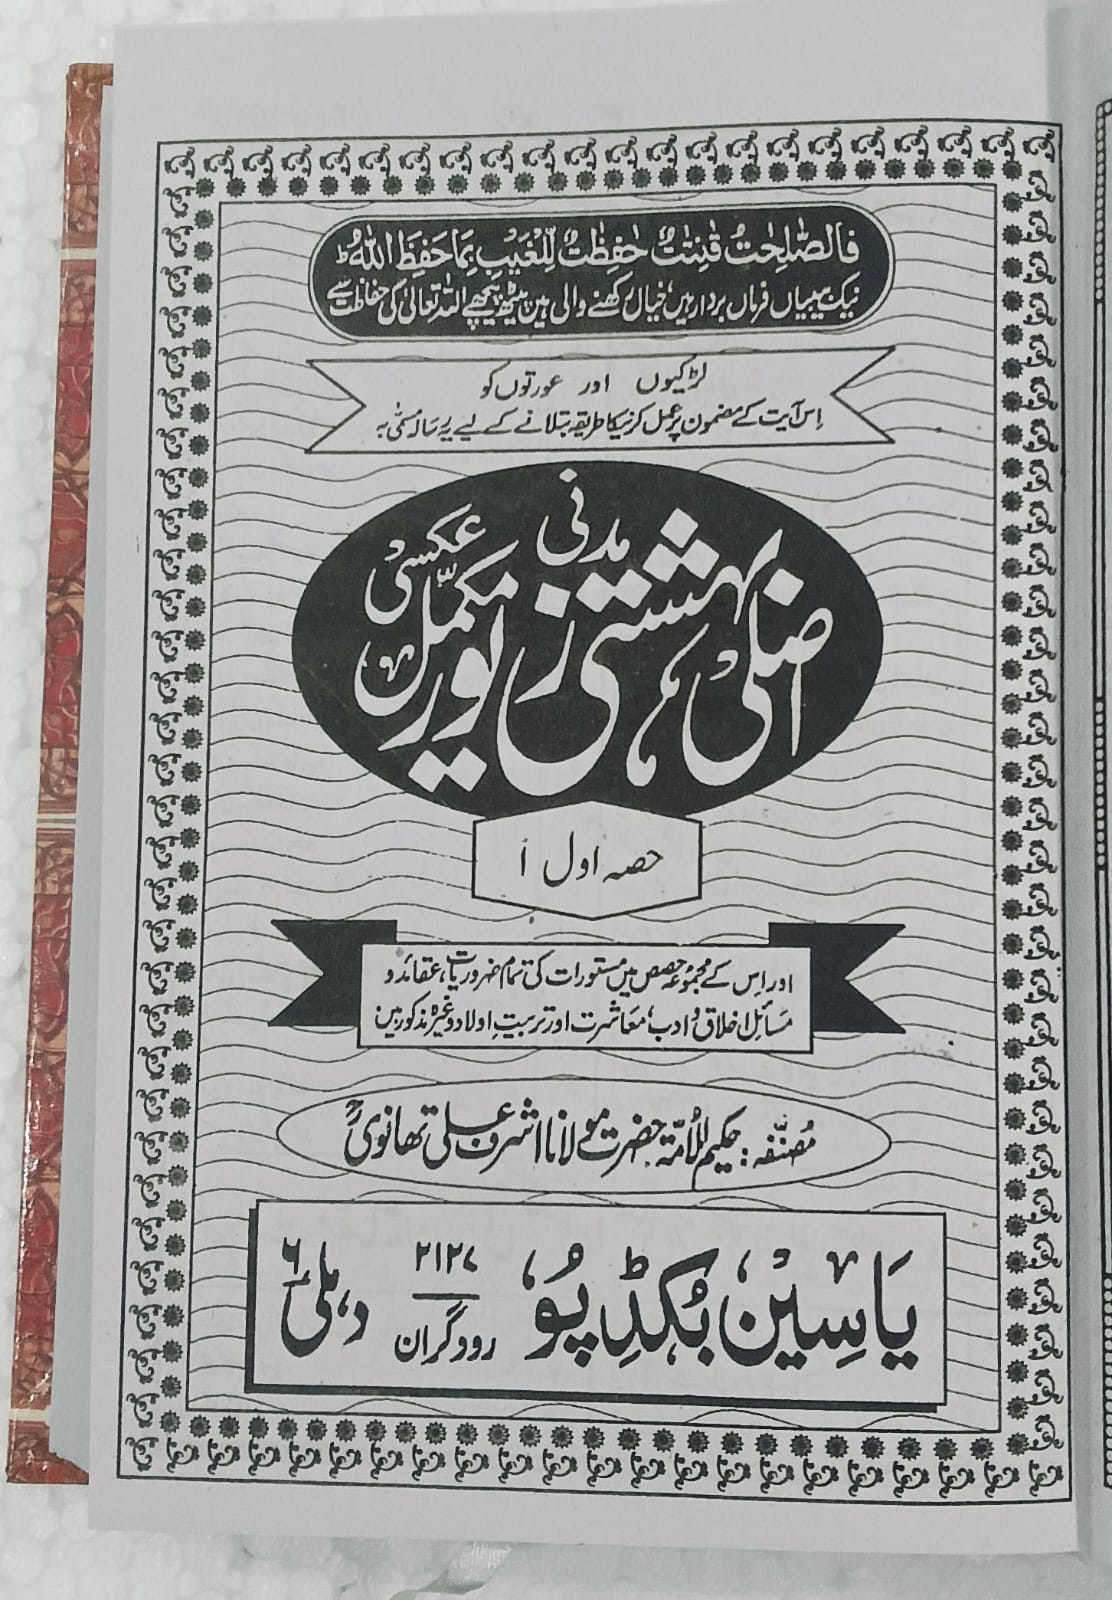 فَالصّٰلِحٰتُ قٰنِتٰتٌ حٰفِظٰتٌ لِّلْغَيْبِ بِمَا حَفِظَ اللّٰهُ ط
نیک بیبیاں فرماں بردار ہیں، خیال رکھنے والی ہیں پیٹھ پیچھے اللہ تعالیٰ کی حفاظت سے
لڑکیوں اور عورتوں کو
اِس آیت کے مضمون پر عمل کرنیکا طریقہ بتلانے کے لیے یہ رسالہ مسمّٰی بہ
اصلی بہشتی زیور مکمّل
مدنی
عکسی
حصہ اول ۱
اور اِس کے مجموعۂ حصص میں مستورات کی تمام ضروریات، عقائد و
مسائل اخلاق و ادب، معاشرت اور تربیتِ اولاد وغیرہ مذکور ہیں
مُصنّفہ: حکیم الاُمّۃ حضرت مولانا اشرف علی تھانویؒ
یَاسِین بُکڈِپو، ۲۱۲۷ رودگران دہلی ۶